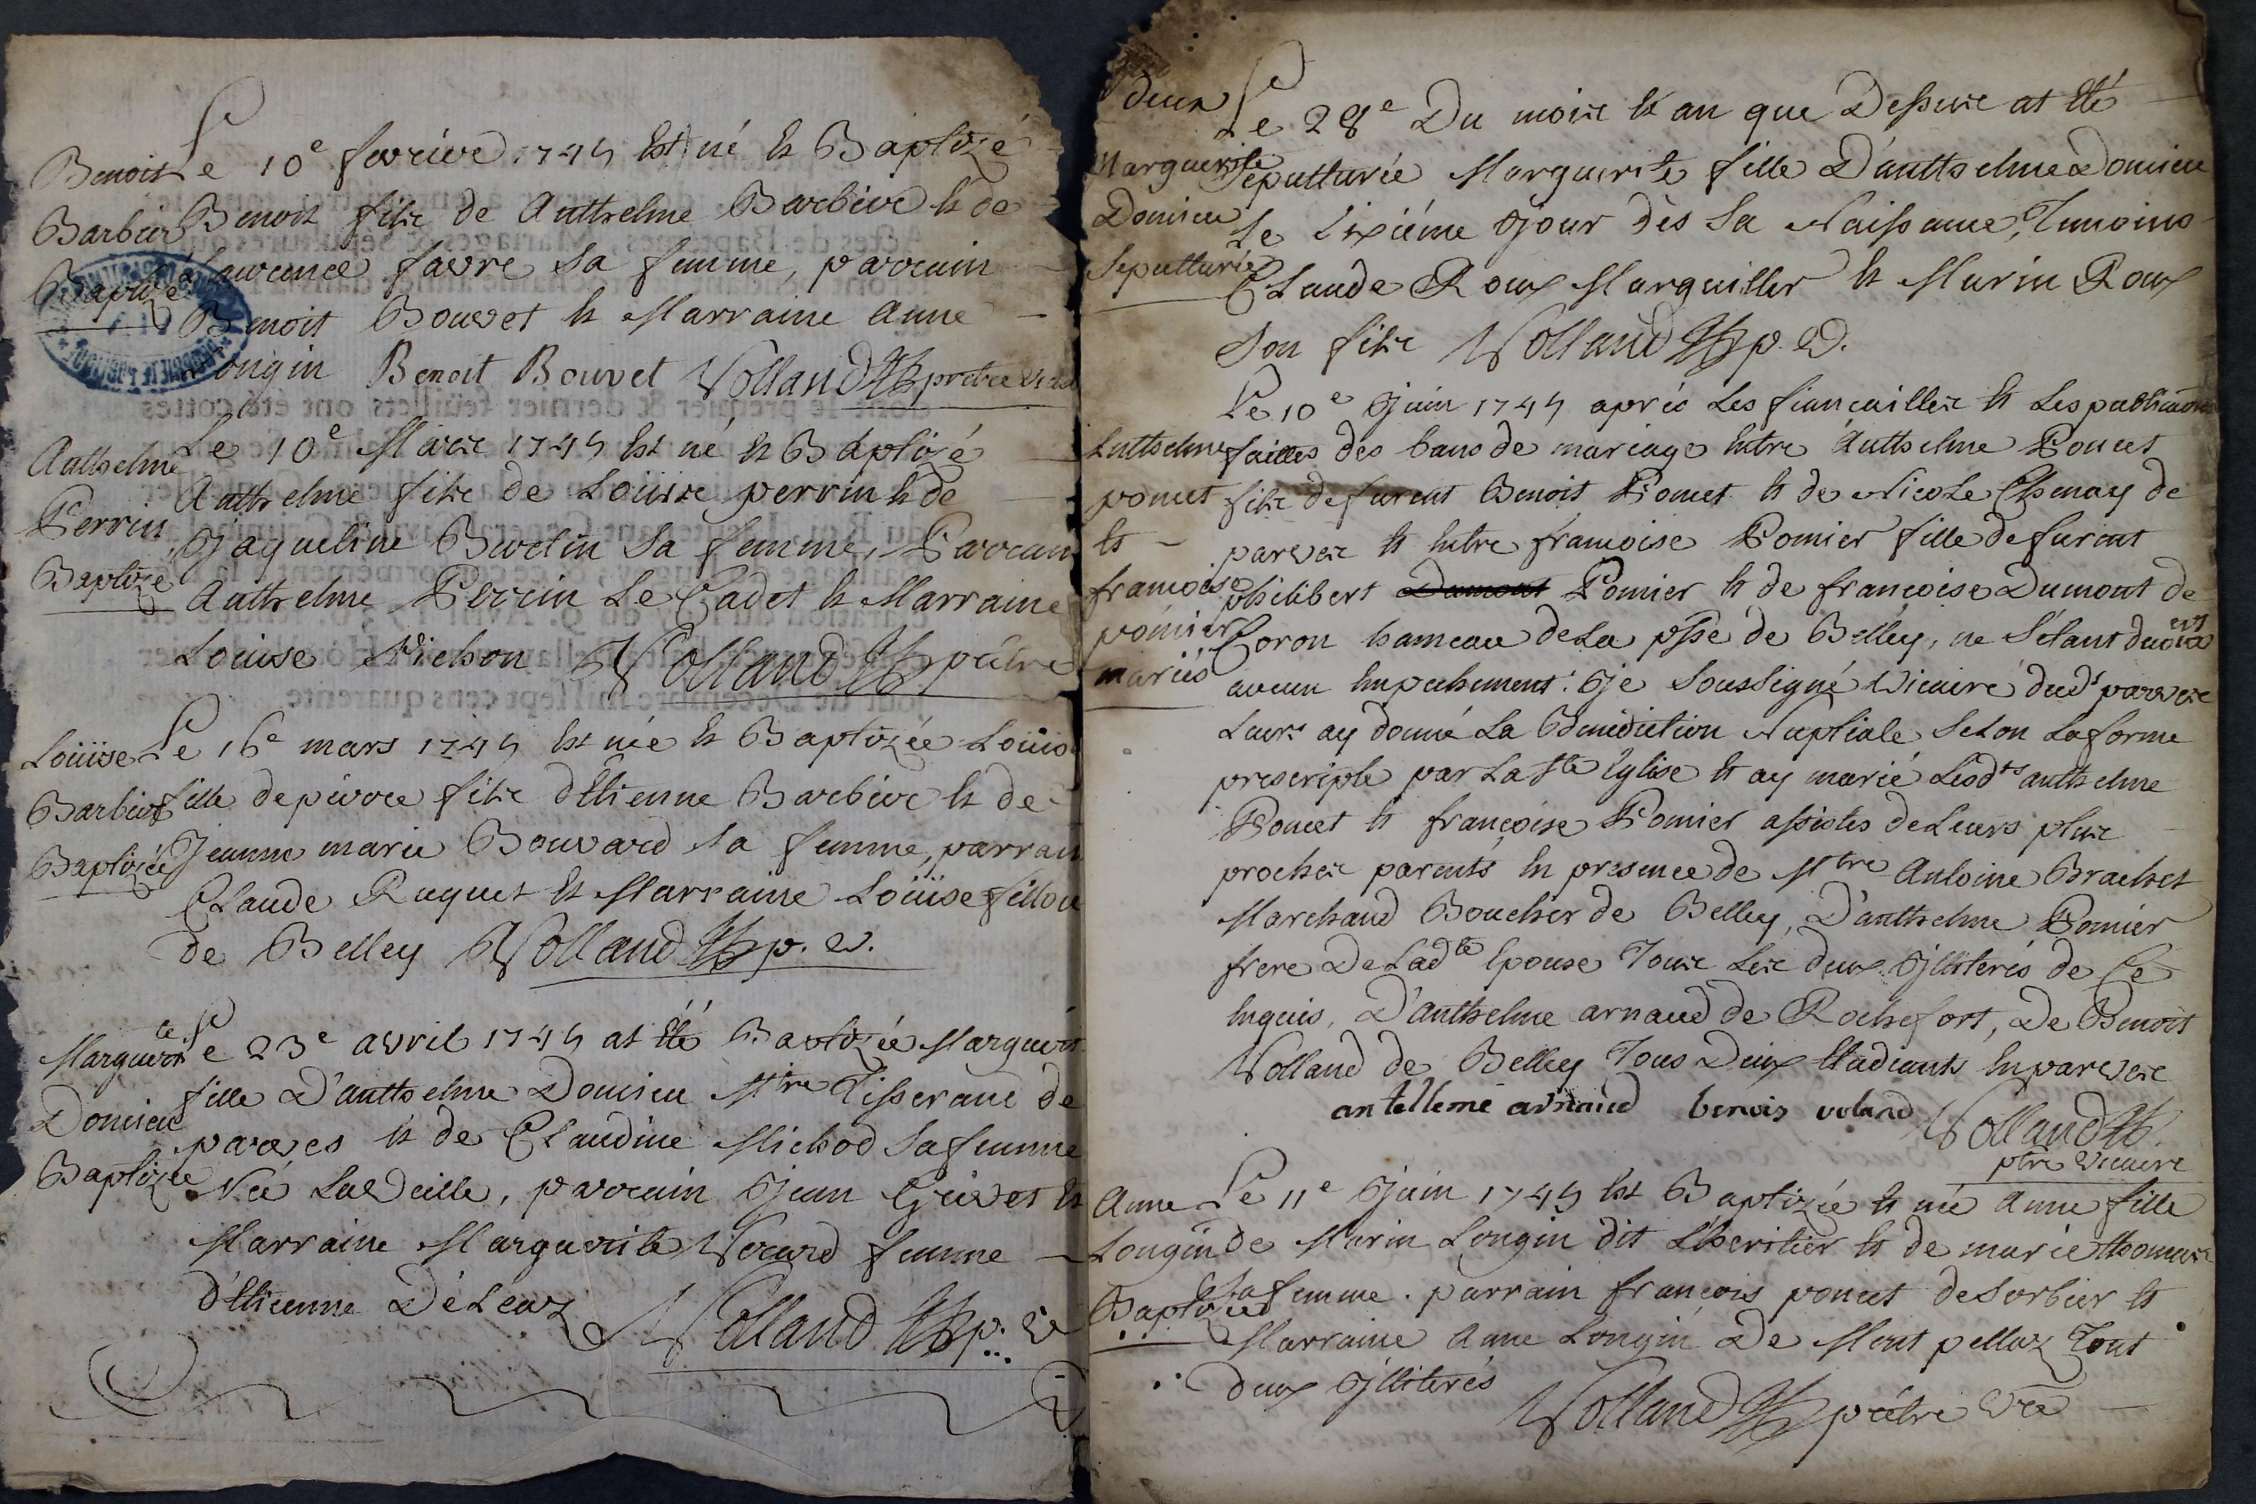 Benoit
Barbier
Baptizé
Le 10e fevrier 1745 Est né Et Baptizé
Benoit fils de Anthelme Barbier Et de
Laurence favre Sa femme, parrain
Benoit Bouvet Et Marraine Anne
Longin Benoit Bouvet Volland prêtre
Anthelme
Perrin
Baptizé
Le 10e Mars 1745 Est né Et Baptizé
Anthelme fils de Loüis perrin Et de
Jaqueline Burlin Sa femme, Parrain
Anthelme Perrin Le Cadet Et Marraine
Loüise Michon Volland prêtre
Loüise
Barbier
Baptizée
Le 16e mars 1745 Est née Et Baptizée Loüise
fille de pierre fils d'Etienne Barbier Et de
Jeanne marie Bouvard Sa femme, parrain
Claude Ruquet Et Marraine Loüise fillou
de Belley Volland p. v.
Marguerite
Domieu
Baptizée
Le 23e avril 1745 at Eté Baptizée Marguerite
fille D'anthelme Domieu Mtre Tisserand de
parves Et de Claudine Michod Sa femme
Née La Veille, parrain Jean Guivet Et
Marraine Marguerite Vocard femme
d'Etienne Déléaz Volland p. v
deux
Marguerite
Domieu
Sepulturée
Le 28e Du mois Et an que Dessus at Eté
Sepulturée Marguerite fille D'anthelme Domieu
Le Sixiéme Jour dès Sa Naissance, Temoins
Claude Roux Marguiller Et Marin Roux
Son fils Volland p. v.
Anthelme
poncet
Et
françoise
pomier
mariés
Le 10e Juin 1745 après Les fiançailles Et Les publications
faittes des bans de mariage Entre Anthelme Poncet
fils de furent Benoit Poncet Et de Nicole Chenay de
parves Et Entre françoise Pomier fille de furent
philibert Dumont Pomier Et de françoise Dumont de
Coron hameau de La psse de Belley, ne S'étant decouvert
aucun Empechement: Je Soussigné Vicaire dudt parves
Leurs ay donné La Benediction Nuptiale Selon La forme
prescripte par La Ste Eglise Et ay marié Lesdts anthelme
Poncet Et françoise Pomier assistés de Leurs plus
proches parents En presence de Mtre Antoine Brachet
Marchand Boucher de Belley, D'anthelme Pomier
frere De Ladte Epouse Tous Les deux Jlliterés de Ce
Enquis, D'anthelme arnaud de Rochefort, De Benoit
Volland de Belley Tous Deux Etudiants En parves
antelleme arnaud benois voland Volland
ptre vicaire
Anne
Longin
Baptizée
Le 11e Juin 1745 Est Baptizée Et née Anne fille
de Marin Longin dit L'heritier Et de marie thomas
Sa femme. parrain françois poncet de Sorbier Et
Marraine Anne Longin De Mont pellaz Tout
deux Jlliterés Volland prêtre vre